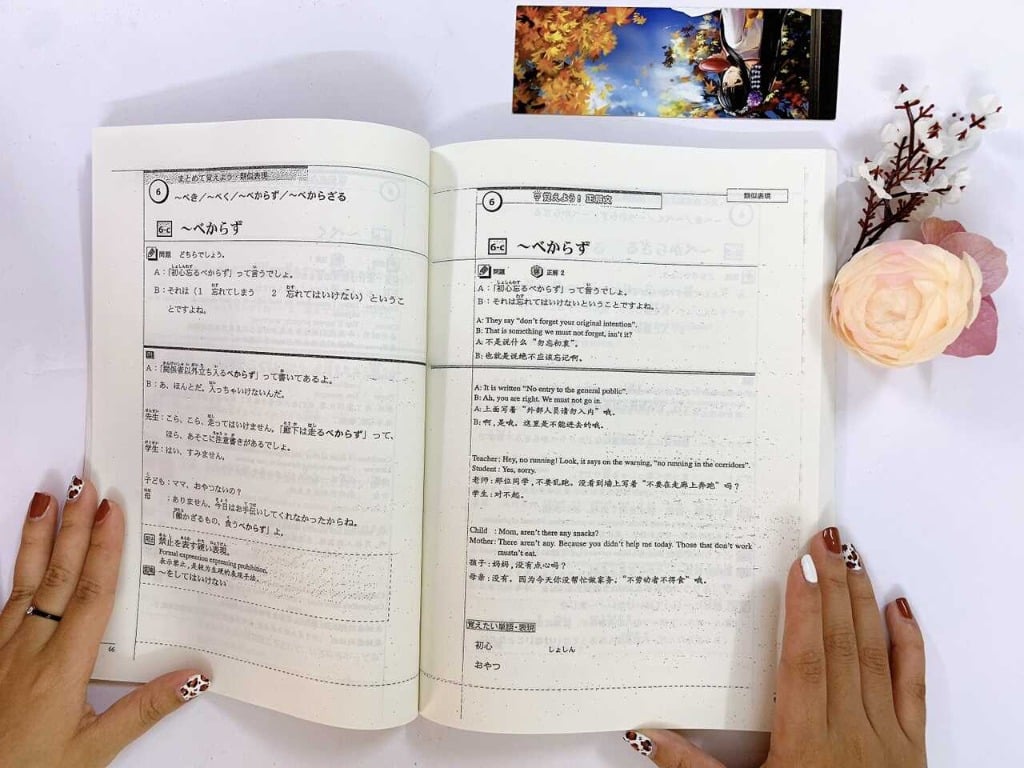 まとめて覚えよう・類似表現
6
～べき／～べく／～べからず／～べからざる
6-c ～べからず
問題 どちらでしょう。
A：「初心忘るべからず」って言うでしょ。
B：それは（1 忘れてしまう 2 忘れてはいけない）というこ
とですよね。
例
A：「関係者以外立ち入るべからず」って書いてあるよ。
B：あ、ほんとだ。入っちゃいけないんだ。
先生：こら、こら、走ってはいけません。「廊下は走るべからず」って、
ほら、あそこに注意書きがあるでしょ。
学生：はい、すみません。
子ども：ママ、おやつないの？
母：ありません。今日はお手伝いしてくれなかったからね。
「働かざるもの、食うべからず」よ。
禁止を表す硬い表現。
Formal expression expressing prohibition.
表示禁止，是较为生硬的表现手法。
～をしてはいけない
66
6
覚えよう！正解文
類似表現
6-c ～べからず
問題 正解 2
A：「初心忘るべからず」って言うでしょ。
B：それは忘れてはいけないということですよね。
A: They say "don't forget your original intention".
B: That is something we must not forget, isn't it?
A: 不是说什么“勿忘初衷”。
B: 也就是说绝不应该忘记啊。
A: It is written "No entry to the general public".
B: Ah, you are right. We must not go in.
A: 上面写着“外部人员请勿入内”哦。
B: 啊，是哦。这里是不能进去的哦。
Teacher : Hey, no running! Look, it says on the warning, "no running in the corridors".
Student : Yes, sorry.
老师：那位同学，不要乱跑。没看到墙上写着“不要在走廊上奔跑”吗？
学生：对不起。
Child : Mom, aren't there any snacks?
Mother: There aren't any. Because you didn't help me today. Those that don't work
mustn't eat.
孩子：妈妈，没有点心吗？
母亲：没有。因为今天你没帮忙做家务。“不劳动者不得食”哦。
覚えたい単語・表現
初心 しょしん
おやつ